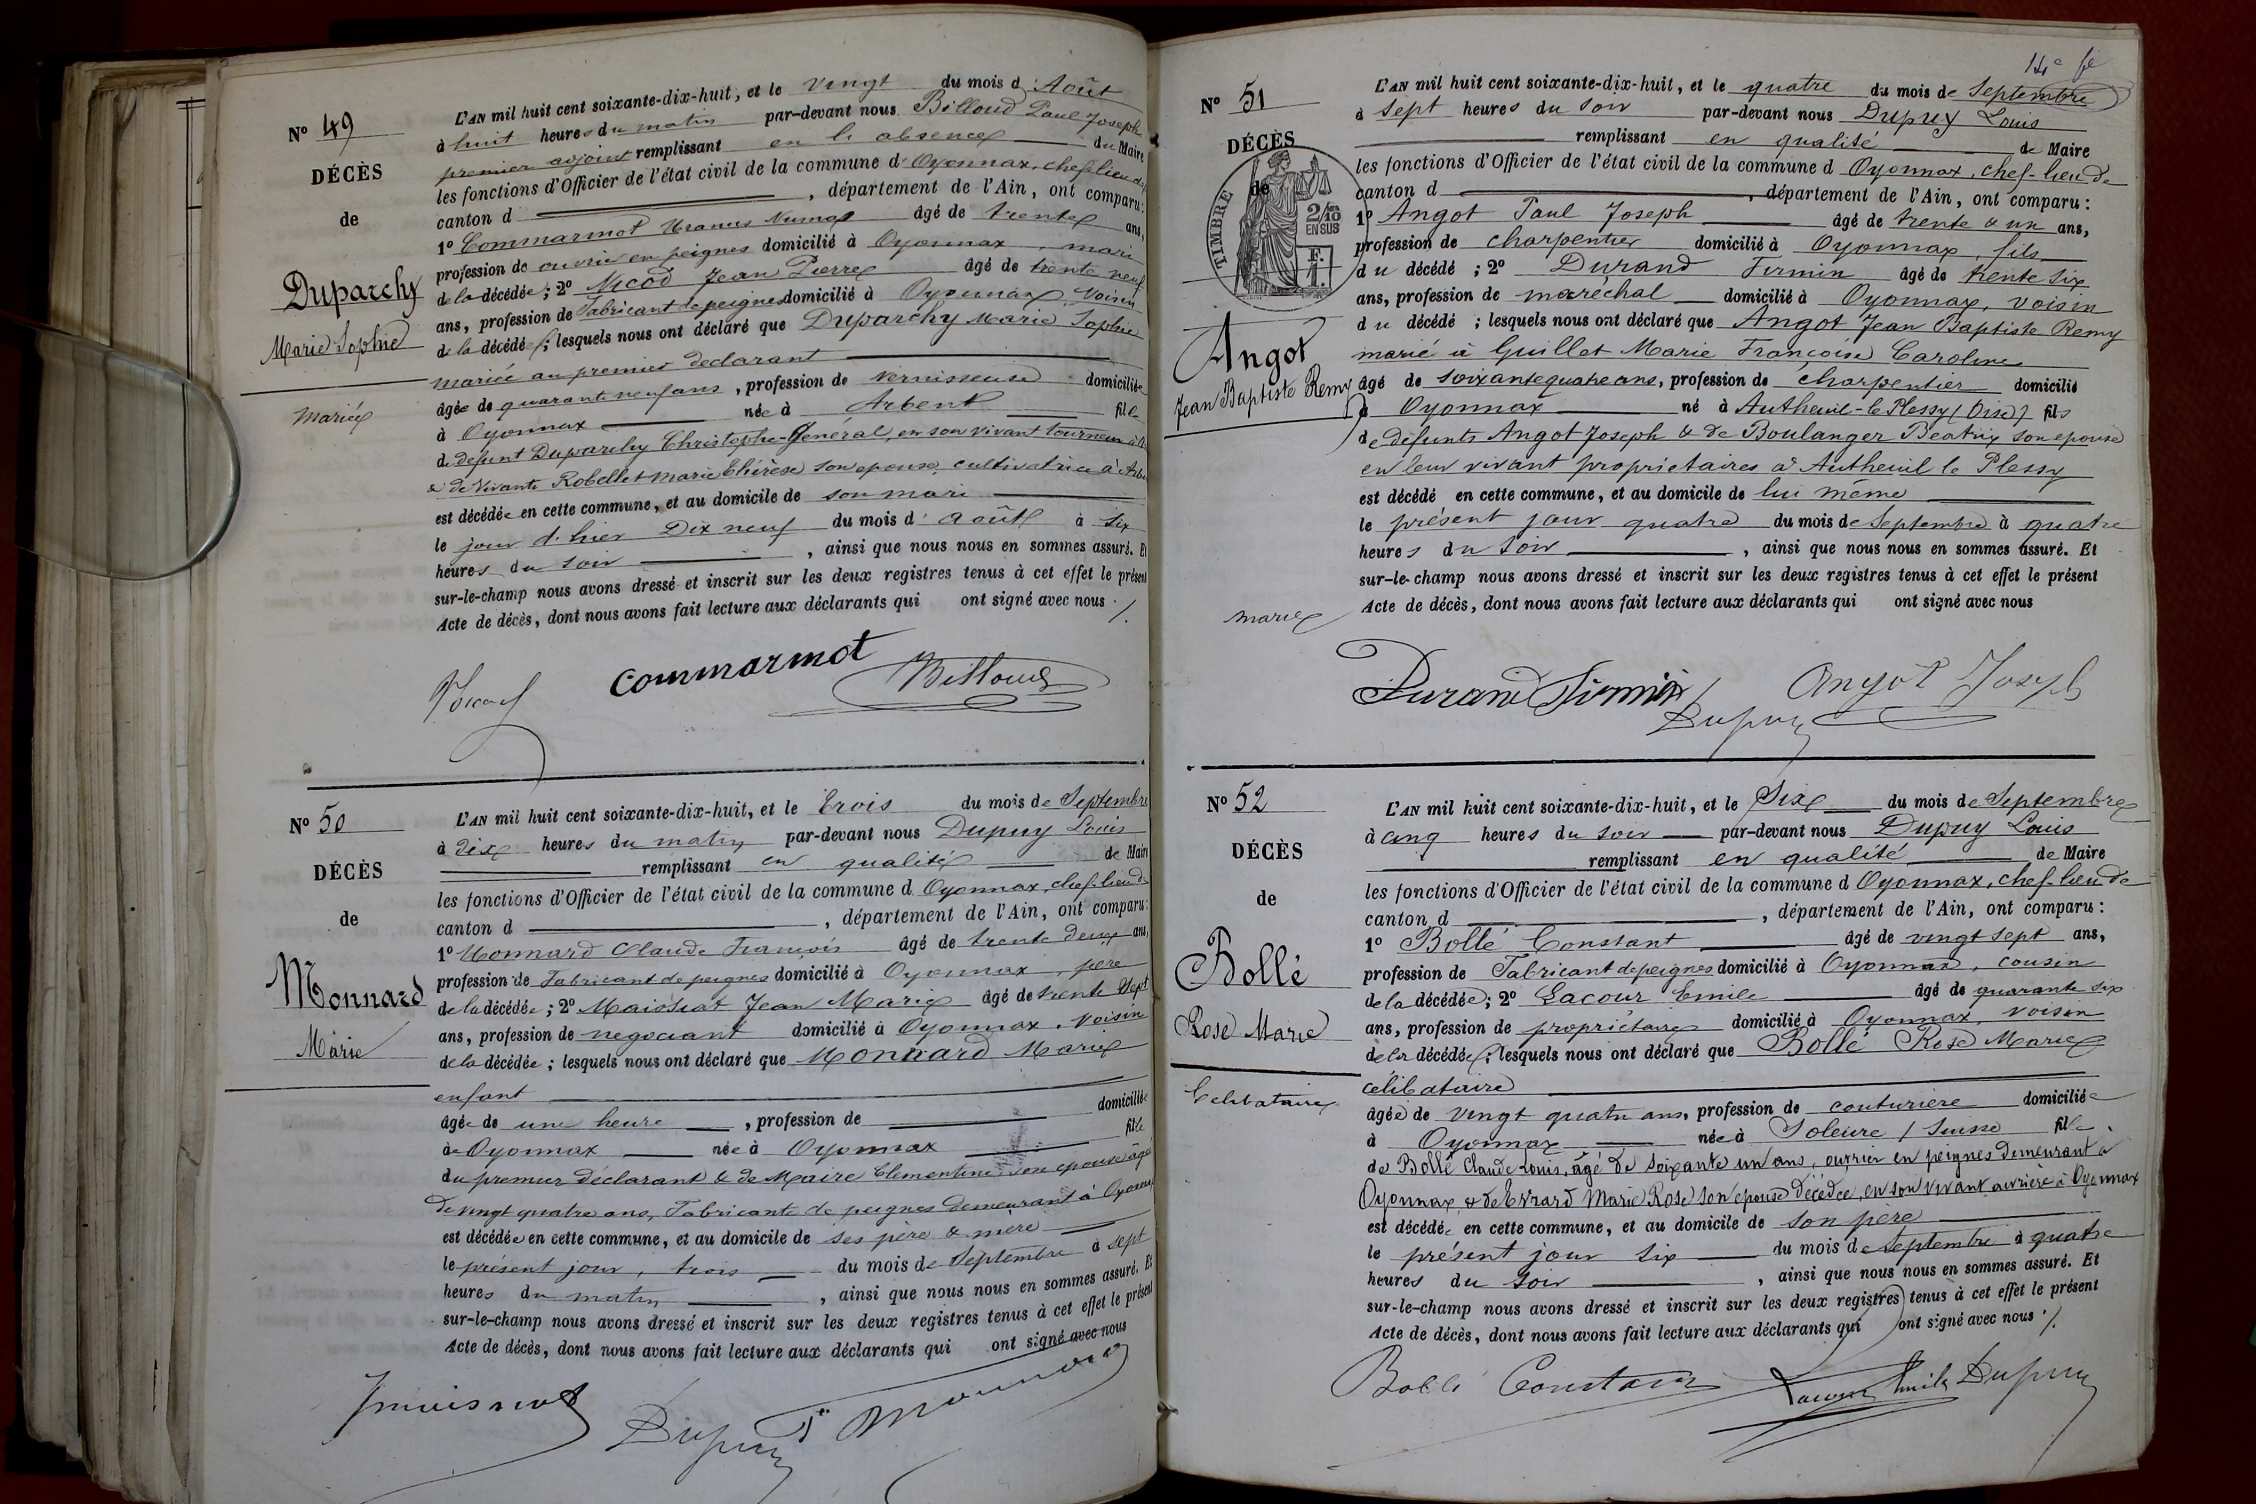 N° 49
DÉCÈS
de
Duparchy
Marie Sophie
mariée
L'AN mil huit cent soixante-dix-huit, et le vingt du mois d'Août
à huit heures du matin par-devant nous Billoud Paul Joseph
premier adjoint remplissant en l'absence du Maire
les fonctions d'Officier de l'état civil de la commune d'Oyonnax, chef-lieu de
canton d , département de l'Ain, ont comparu:
1° Commarmot Uranus Numa âgé de trente ans,
profession de ouvrier en peignes domicilié à Oyonnax, mari
de la décédée; 2° Nicod Jean Pierre âgé de trente neuf
ans, profession de fabricant de peignes domicilié à Oyonnax, voisin
de la décédée; lesquels nous ont déclaré que Duparchy Marie Sophie
mariée au premier déclarant
âgée de quarante neuf ans, profession de vernisseuse domiciliée
à Oyonnax née à Arbent fille
de défunt Duparchy Christophe-Général, en son vivant tourneur à
& de vivante Robellet Marie Thérèse son épouse, cultivatrice à
est décédée en cette commune, et au domicile de son mari
le jour d'hier Dix neuf du mois d'août à six
heures du soir , ainsi que nous nous en sommes assuré. Et
sur-le-champ nous avons dressé et inscrit sur les deux registres tenus à cet effet le présent
Acte de décès, dont nous avons fait lecture aux déclarants qui ont signé avec nous ./.
Commarmot Billoud
N° 50
DÉCÈS
de
Monnard
Marie
L'AN mil huit cent soixante-dix-huit, et le trois du mois de Septembre
à dix heures du matin par-devant nous Dupuy Louis
remplissant en qualité de Maire
les fonctions d'Officier de l'état civil de la commune d Oyonnax, chef-lieu de
canton d , département de l'Ain, ont comparu:
1° Monnard Claude François âgé de trente deux ans,
profession de Fabricant de peignes domicilié à Oyonnax, père
de la décédée; 2° Maissiat Jean Marie âgé de trente sept
ans, profession de négociant domicilié à Oyonnax, voisin
de la décédée; lesquels nous ont déclaré que Monnard Marie
enfant
âgée de une heure , profession de domiciliée
à Oyonnax née à Oyonnax fille
du premier déclarant & de Maire Clémentine son épouse âgée
de vingt quatre ans, Fabricante de peignes demeurant à Oyonnax
est décédée en cette commune, et au domicile de ses père & mère
le présent jour, trois du mois de Septembre à sept
heures du matin , ainsi que nous nous en sommes assuré. Et
sur-le-champ nous avons dressé et inscrit sur les deux registres tenus à cet effet le présent
Acte de décès, dont nous avons fait lecture aux déclarants qui ont signé avec nous
Jmaissiat Dupuy Monnard
N° 51
DÉCÈS
de
TIMBRE
2/10 EN SUS
F. 1.
Angot
Jean Baptiste Remy
marié
L'AN mil huit cent soixante-dix-huit, et le quatre du mois de Septembre
à sept heures du soir par-devant nous Dupuy Louis
remplissant en qualité de Maire
les fonctions d'Officier de l'état civil de la commune d Oyonnax, chef-lieu de
canton d , département de l'Ain, ont comparu:
1° Angot Paul Joseph âgé de trente & un ans,
profession de charpentier domicilié à Oyonnax, fils
du décédé; 2° Durand Firmin âgé de trente six
ans, profession de maréchal domicilié à Oyonnax, voisin
du décédé; lesquels nous ont déclaré que Angot Jean Baptiste Remy
marié à Guillot Marie Françoise Caroline
âgé de soixante quatre ans, profession de charpentier domicilié
à Oyonnax né à Autheuil-le-Plessy (Oise) fils
de défunts Angot Joseph & de Boulanger Béatrix son épouse
en leur vivant propriétaires à Autheuil le Plessy
est décédé en cette commune, et au domicile de lui même
le présent jour quatre du mois de Septembre à quatre
heures du soir , ainsi que nous nous en sommes assuré. Et
sur-le-champ nous avons dressé et inscrit sur les deux registres tenus à cet effet le présent
Acte de décès, dont nous avons fait lecture aux déclarants qui ont signé avec nous
Durand Firmin Angot Joseph
Dupuy
N° 52
DÉCÈS
de
Bollé
Rose Marie
Célibataire
L'AN mil huit cent soixante-dix-huit, et le Six du mois de Septembre
à cinq heures du soir par-devant nous Dupuy Louis
remplissant en qualité de Maire
les fonctions d'Officier de l'état civil de la commune d Oyonnax, chef-lieu de
canton d , département de l'Ain, ont comparu:
1° Bollé Constant âgé de vingt sept ans,
profession de Fabricant de peignes domicilié à Oyonnax, cousin
de la décédée; 2° Lacour Emile âgé de quarante six
ans, profession de propriétaire domicilié à Oyonnax, voisin
de la décédée; lesquels nous ont déclaré que Bollé Rose Marie
célibataire
âgée de vingt quatre ans, profession de couturière domiciliée
à Oyonnax née à Soleure / Suisse fille
de Bollé Claude Louis, âgé de soixante un ans, ouvrier en peignes demeurant à
Oyonnax, & de Evrard Marie Rose son épouse décédée, en son vivant ouvrière à Oyonnax
est décédée en cette commune, et au domicile de son père
le présent jour six du mois de Septembre à quatre
heures du soir , ainsi que nous nous en sommes assuré. Et
sur-le-champ nous avons dressé et inscrit sur les deux registres tenus à cet effet le présent
Acte de décès, dont nous avons fait lecture aux déclarants qui ont signé avec nous ./.
Bollé Constant Lacour Emile Dupuy